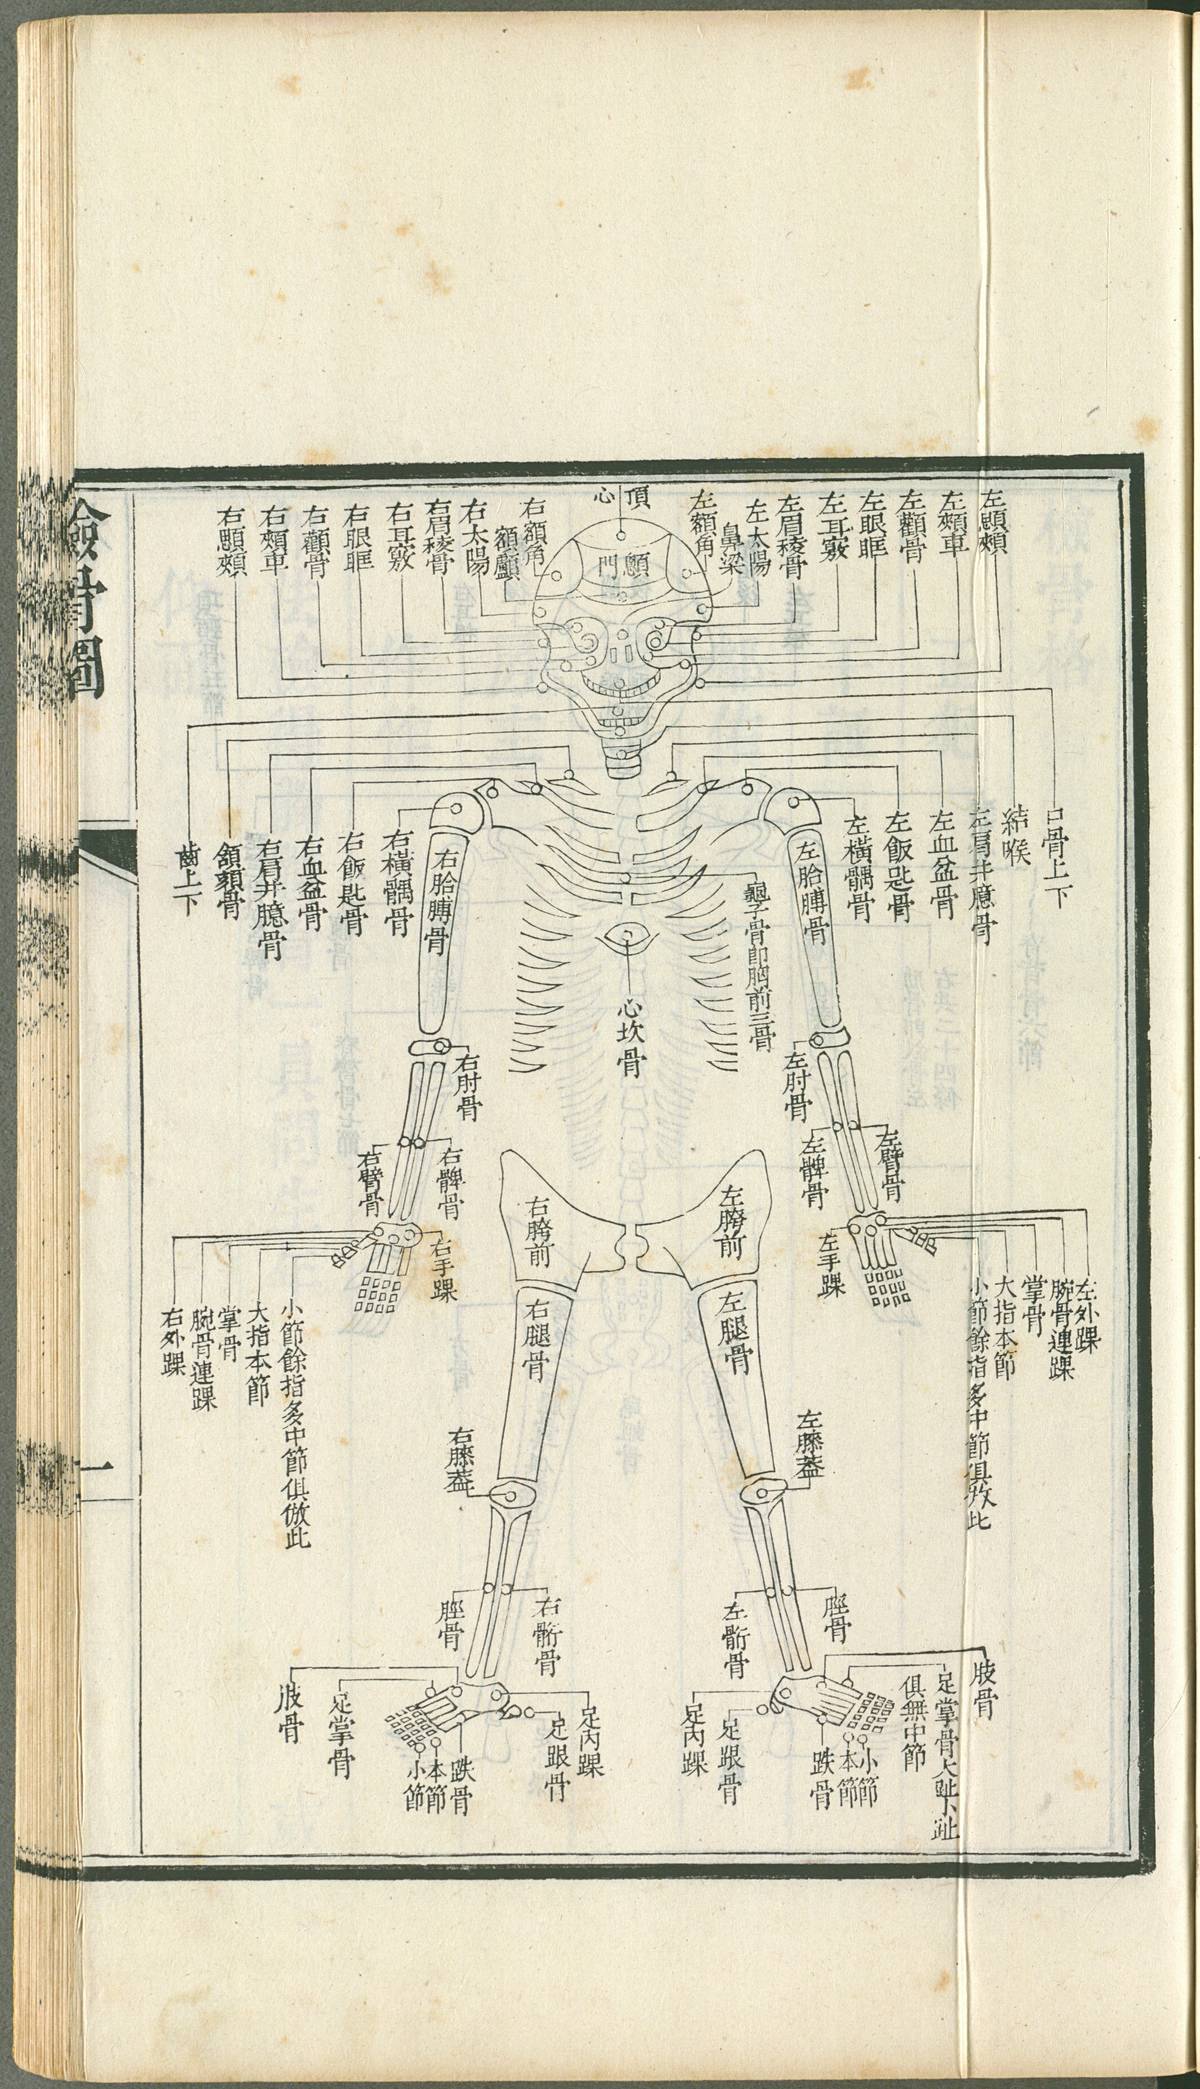 檢骨圖
一
左顋頰
左頰車
左顴骨
左眼眶
左耳竅
左眉稜骨
左太陽
鼻梁
左額角
頂心
顖門
右額角
額顱
右太陽
右眉稜骨
右耳竅
右眼眶
右顴骨
右頰車
右顋頰
口骨上下
結喉
左肩井臆骨
左血盆骨
左飯匙骨
左橫髃骨
左胎膊骨
龜子骨即胸前三骨
心坎骨
右胎膊骨
右橫髃骨
右飯匙骨
右血盆骨
右肩井臆骨
頷頦骨
齒上下
左肘骨
右肘骨
左臂骨
左髀骨
右髀骨
右臂骨
左手踝
右手踝
左外踝
腕骨連踝
掌骨
大指本節
小節餘指多中節俱倣此
小節餘指多中節俱倣此
大指本節
掌骨
腕骨連踝
右外踝
左胯前
右胯前
左腿骨
右腿骨
左膝蓋
右膝蓋
脛骨
左䯒骨
右䯒骨
脛骨
肢骨
足掌骨大趾小趾俱無中節
小節
本節
趺骨
足跟骨
足內踝
足內踝
足跟骨
趺骨
本節
小節
足掌骨
肢骨